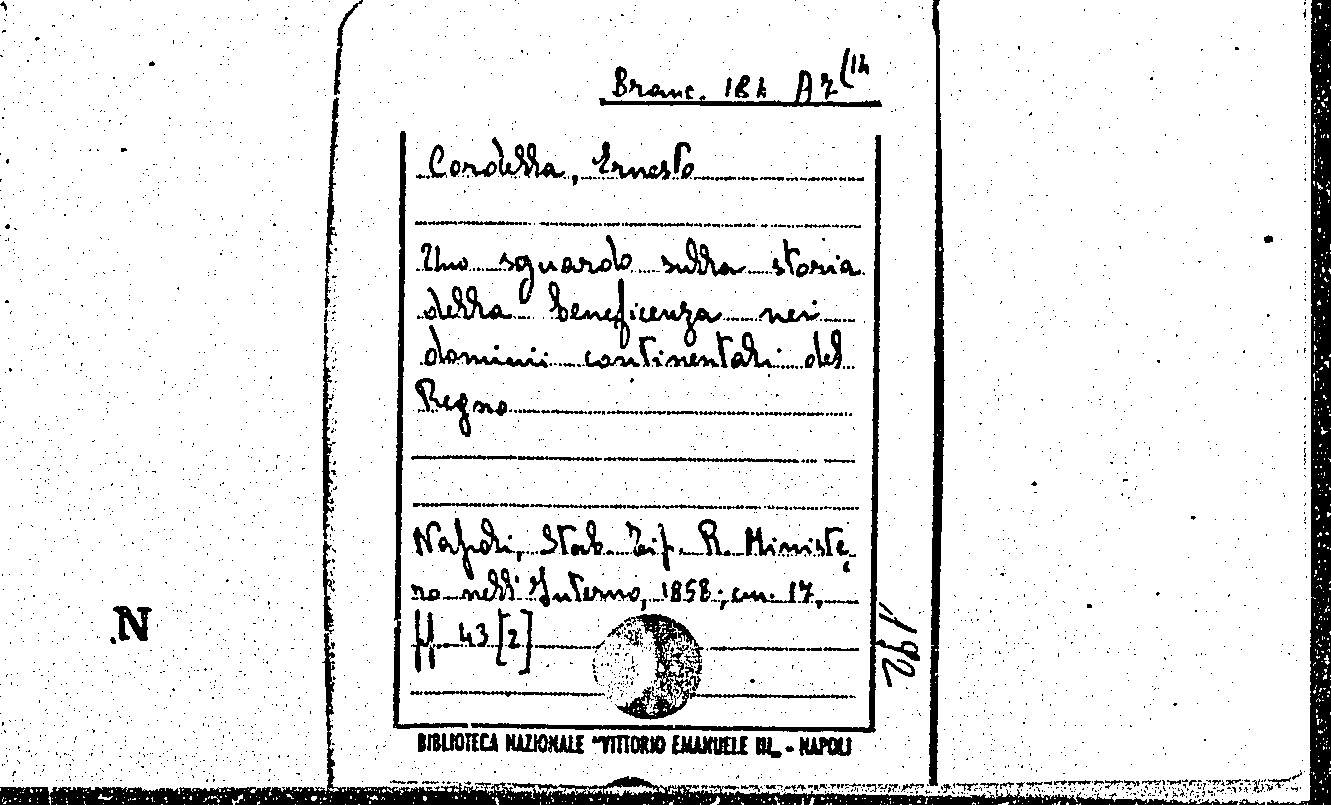 Branc. 184 A7(14
Cordella, Ernesto
Uno sguardo sulla storia
della beneficenza nei
dominii continentali del
Regno
Napoli, Stab. Tip. R. Ministe,
ro nell'Interno, 1858; cm. 17,
pp. 43 [2]
192
N
BIBLIOTECA NAZIONALE "VITTORIO EMANUELE III„ - NAPOLI